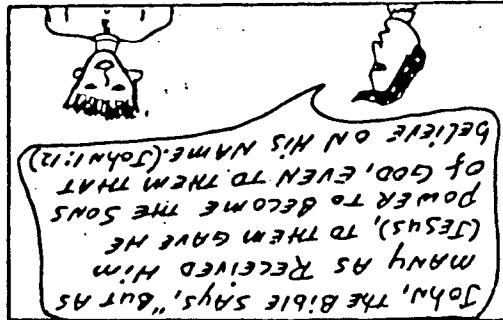 JOHN, THE BiBLE SAYS, "BUT AS
MANY AS RECEIVED HIM
(JESUS), TO THEM GAVE HE
POWER TO BECOME THE SONS
Of GOD, EVEN TO THEM THAT
BELIEVE ON HiS NAME.(JOHN1:12)